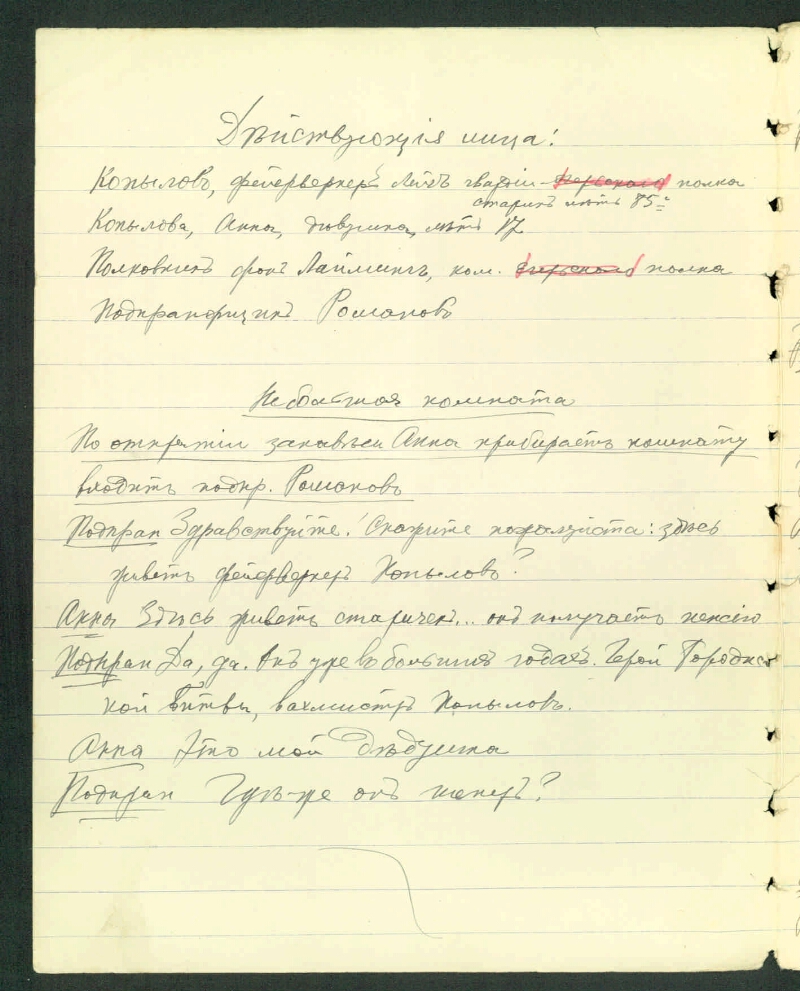 Дѣйствующія лица!
Копыловъ, фейерверкеръ Лейбъ гвардіи Егерского полка
старикъ лѣтъ 85-и
Копылова, Анна, дѣвушка, лѣтъ 17
Полковникъ фонъ Лаймингъ, ком. Егерского полка
Подпрапорщикъ Романовъ
Небольшая комната
По открытіи занавѣси Анна прибираетъ комнату
входитъ подпр. Романовъ
Подпрап Здравствуйте! Скажите пожалуйста: здѣсь
живетъ фейерверкеръ Копыловъ?
Анна Здѣсь живетъ старичек... онъ получаетъ пенсію
Подпрап Да, да. Онъ уже въ большихъ годахъ. Герой Городнес
кой битвы, вахмистръ Копыловъ.
Анна Это мой дѣдушка
Подпрап Гдѣ-же онъ теперь?